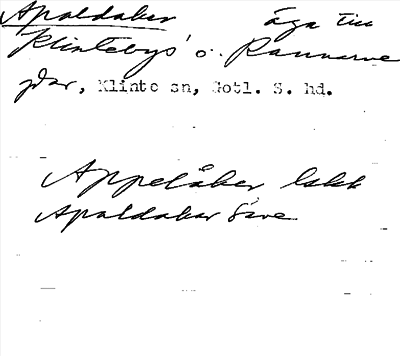 Apoldaker äga till
Klintebys o. Rannarve
gdar, Klinte sn, Gotl. S. hd.
Appelåker
Apoldakar Säve